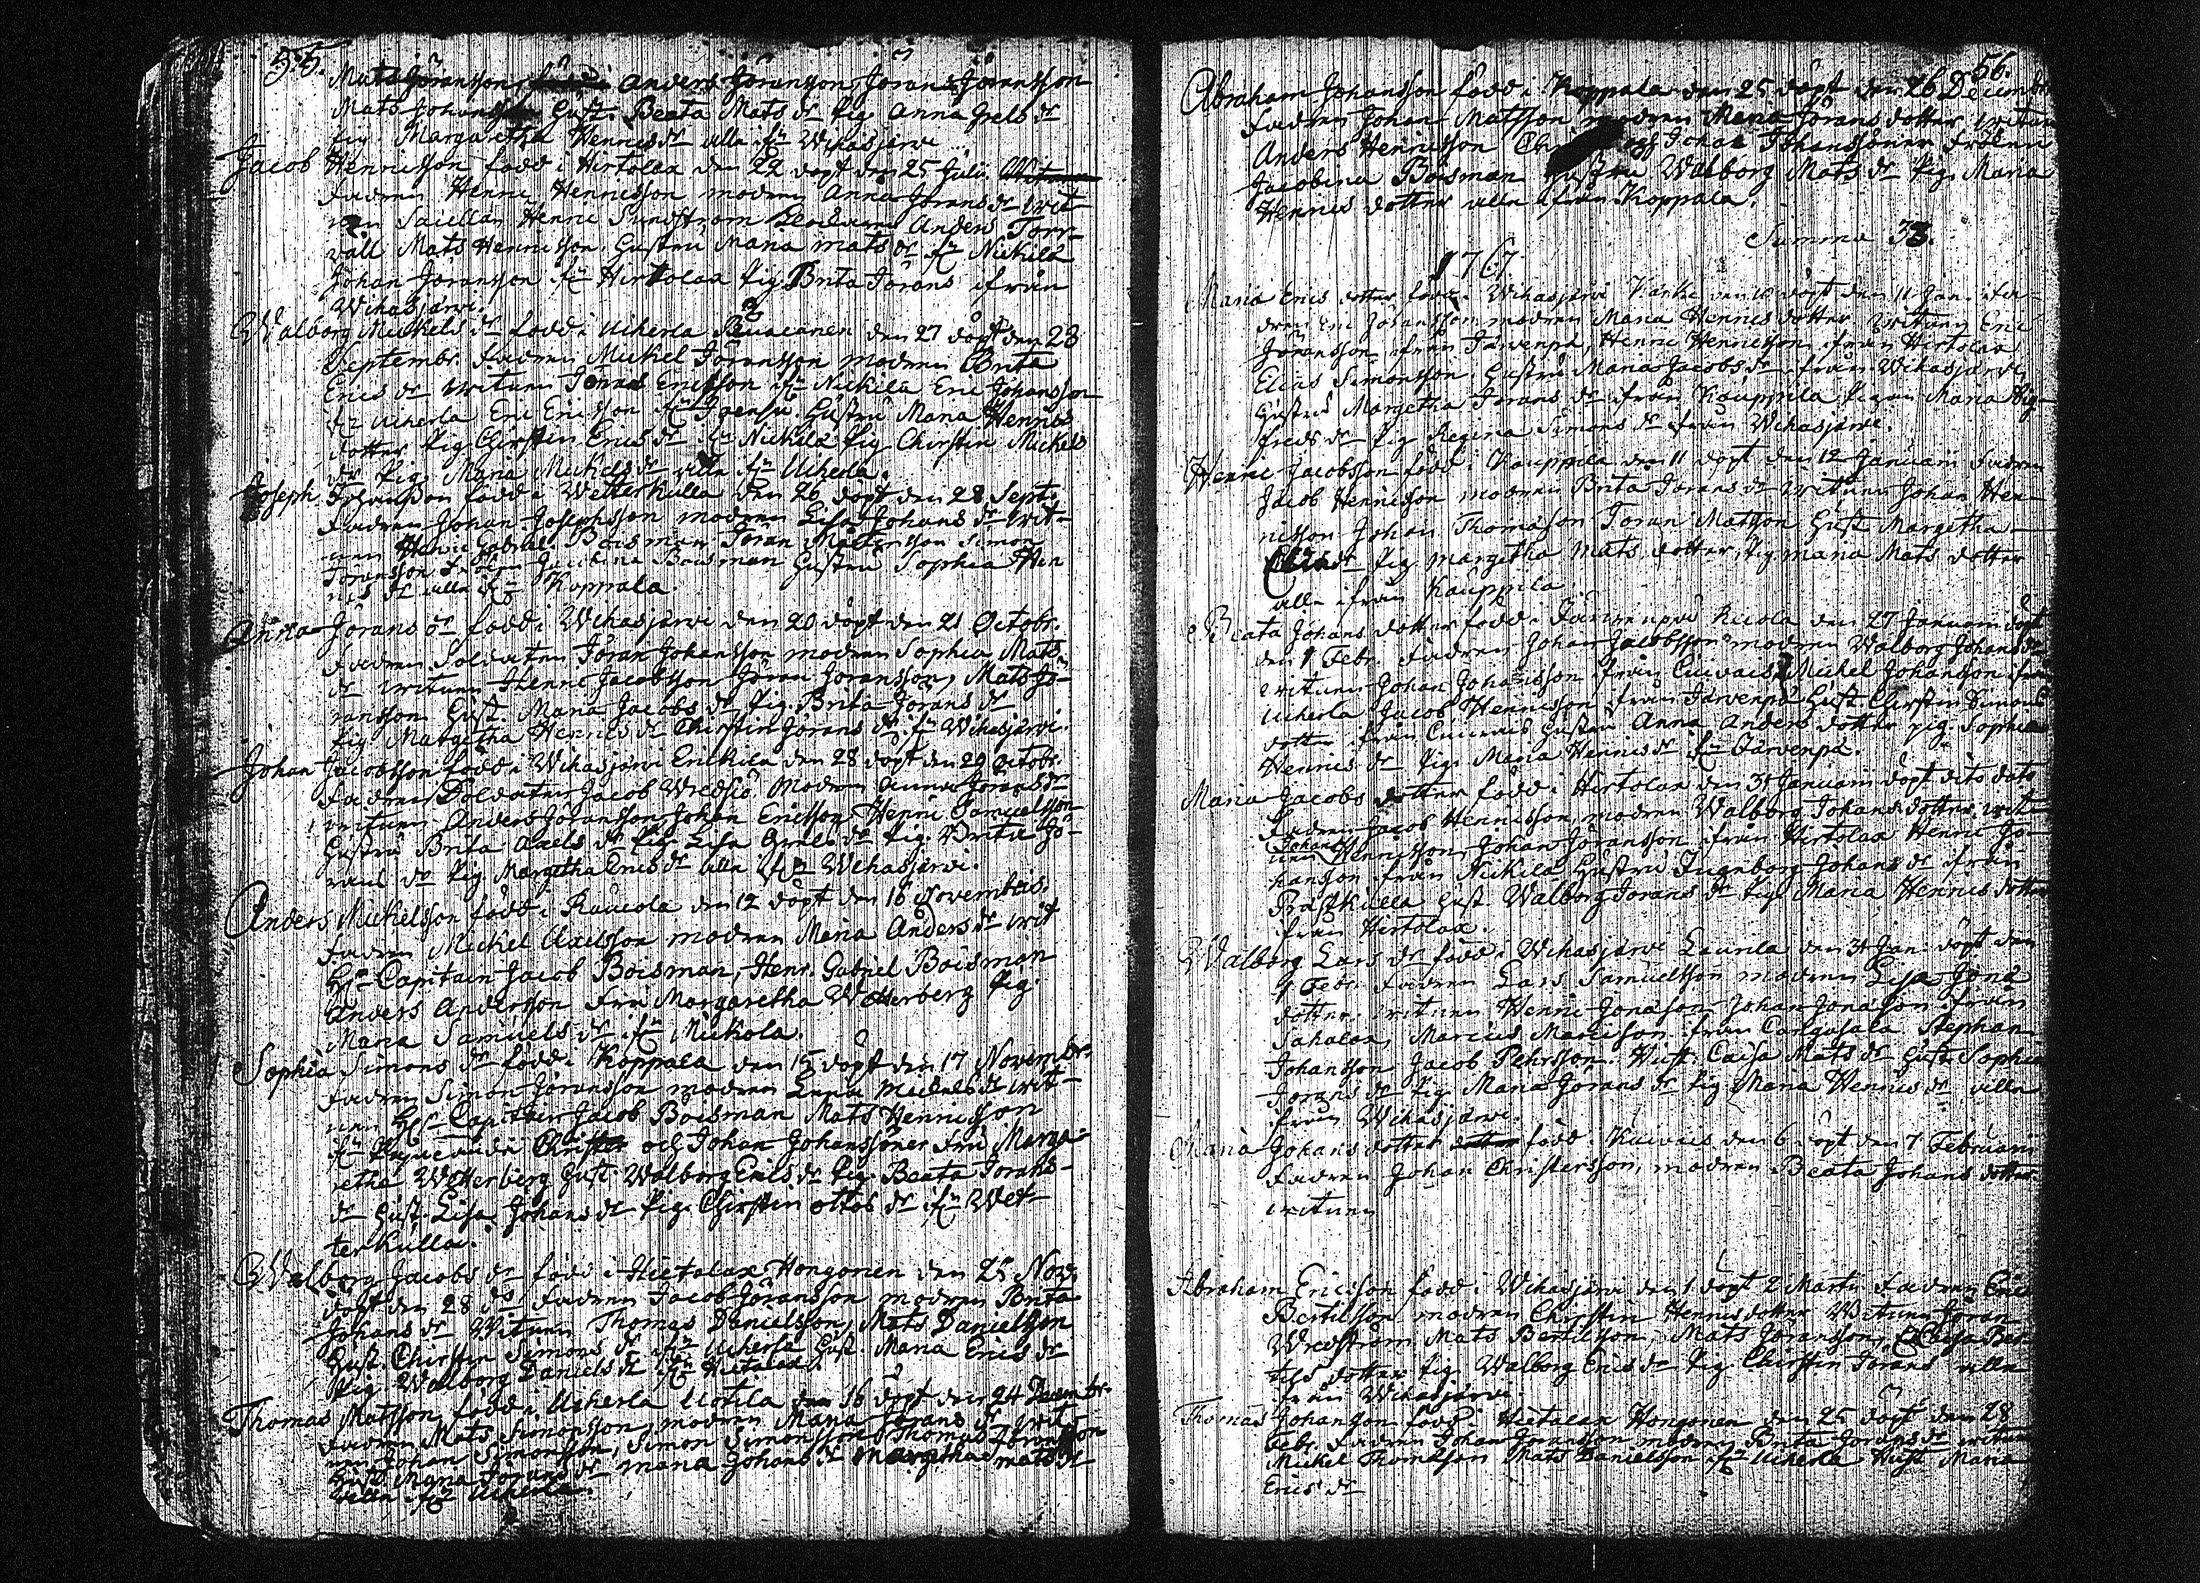 55.
Mats Jöransson, Anders Jöransson, Jöran Jöransson
Mats Johansson Gust. Beata Mats dr Pig. Anna Grels dr
Pig Margaretha Henrics dr alla frn Wihasjärvi
Jacob Henricsson född i Hirtolax den 22 döpt den 25 Julii.
Fadren Henric Henricsson modren Anna Jörans dr wit-
nen Henric Sundström Anders Torn-
wall Mats Henricsson, Gustru Maria Mats dr frn Nickilä
Johan Jöransson frn Hirtolax Pig. Brita Jörans ifrån
Wihasjärvi.
Walborg Mickels dr född i Uiherla den 27 döpt den 28
Septembr. Fadren Mickel Jöransson modren Brita
Erics dr witnen Jonas Ericsson frn Nickilä Eric Johansson
frn Uiherla Eric Ericsson frn Gustru Maria Henrics
dotter Pig. Chirstin Erics dr frn Nickilä Pig Chirstin Mickels
dr Pig. Maria Mickels dr alla frn Uiherla.
Joseph Johansson född i Wetterkulla den 26 döpt den 28 Sept.
Fadren Johan Josephsson modren Lisa Johans dr wit-
nen Henric Gabriel Boisman Jöran Simon
Jöransson Fröken Jacobina Boisman Gustru Sophia Hen
rics dr alla frn Koppala.
Anna Jörans dr född i Wihasjärvi den 20 döpt den 21 Octobr.
Fadren Soldaten Jöran Johansson modren Sophia Mats
dr witnen Henric Jacobsson Jöran Jöransson, Mats Jö-
ransson Gust. Maria Jacobs dr Pig. Brita Jörans dr
Pig. Margetha Henrics dr Chirstin Jörans dr frn Wihasjärvi.
Johan Jacobsson född i Wihasjärvi Erickila den 28 döpt den 29 Octobr.
Fadren Soldaten Jacob Modren Anna Jörans dr
witnen Anders Jöransson Johan Ericsson Henric Samuelsson
Gustru Brita Axels dr Pig. Lisa Grels dr Pig. Brita Jö-
rans dr Pig. Margetha Erics dr alla frn Wihasjärvi.
Anders Mickelsson född i den 12 döpt den 16 Novembris.
Fadren Mickel Axelsson modren Maria Anders dr wit
Hr Capitain Jacob Boisman, Henr. Gabriel Boisman
Anders Andersson Fru Margaretha Wetterberg Pig.
Maria Samuels dr frn Nickola.
Sophia Simons dr född i Koppala den 15 döpt den 17 Novembr.
Fadren Simon Jöransson modren Mickels dr wit-
nen Hr Capitain Jacob Boisman Mats Henricsson
frn Christer och Johan Johanssöner Fru Marga-
retha Wetterberg Gust. Walborg Erics dr Pig. Beata Jorans-
dr Gust. Lisa Johans dr Pig. Chirstin Ottos dr frn Wet-
terkulla.
Walborg Jacobs dr född i Hietalax Hongonen den 25 Nov.
döpt den 28 do Fadren Jacob Jöransson modren Brita
Johans dr Witnen Thomas Danielsson, Mats Danielsson
Gust. Chirstin Simons dr frn Uiherla Gust. Maria Erics dr
Pig Walborg Daniels dr frn Hietalax.
Thomas Matsson född i Uiherla Uotila den 16 döpt den 24 Decembr.
Fadren Mats Simonsson, modren Maria Jörans dr wit-
nen Johan Simonsson, Simon Simonsson Thomas Jöransson
Gust. Maria Jorans dr Maria Johans dr Margetha Mats dr
alla frn Uiherla.
56.
Abraham Johansson född i Koppala den 25 döpt den 26 Decembr.
Fadren Johan Matsson modren Maria Jörans dotter witnen
Anders Henricsson och Johan Johanssöner Fröken
Jacobina Boisman Gustru Walborg Mats dr Pig. Maria
Henrics dotter alla ifrån Koppala.
Summa 33.
1767
Maria Erics dotter född i Wihasjärvi den 10 döpt den 11 Jan. Fa-
dren Eric Johansson modren Maria Henrics dotter witnen Eric
Jöransson ifrån Järvenpä, Henric Henricsson ifrån Hirtolax
Elias Simonsson Gustru Maria Jacobs dr ifrån Wihasjärvi
Gustru Margetha Jorans dr ifrån Kauppila Pigan Maria Sig-
freds dr Pig. Regina Simons dr ifrån Wihasjärvi.
Henric Jacobsson född i Kauppila den 11 döpt den 12 Januarii Fadren
Jacob Henricsson modren Brita Jorans dr witnen Johan Hen-
ricsson Johan Thomasson Jöran Matsson Gust. Margetha
dr Pig. Margetha Mats dotter, Pig. Maria Mats dotter
alla ifrån Kauppila.
Beata Johans dotter född i Järvenpä den 27 Januarii döpt
den 1 Febr. Fadren Johan Jacobsson modren Walborg Johans dr
witnen Johan Johansson ifrån Mickel Johansson ifrån
Uiherla Jacob Henricsson från Järvenpä Gust. Chirstin Simons
dotter från Gustru Anna Anders dotter pig. Sophia
Henrics dr Pig. Maria Henrics dr frn Järvenpä.
Maria Jacobs dotter född i Hirtolax den 31 Januarii döpt dito dato
Fadren Jacob Henricsson, modren Walborg Johans dotter wit-
nen Johan Henricsson, Johan Jöransson ifrån Hirtolax Henric Jo-
hansson från Nickilä Gustru Ingeborg Johans dr ifrån
Gust. Walborg Jorans dr Pig. Maria Henrics dotter
från Hirtolax.
Walborg Lars dr född i Wihasjärvi Laurila den 31 Jan. döpt den
1 Febr. Fadren Lars Samuelsson modren Lisa Jöns
dotter. witnen Henric Jonasson Johan Jonasson från
Sahalax, Marcus Marcisson från Stephan
Johansson Jacob Pehrsson. Hust. Caisa Mats dr Gust. Sophia
Jorans dr Pig. Maria Jörans dr Pig. Maria Henrics dr alla
från Wihasjärvi.
Maria Johans dotter född i den 6 döpt den 7 Februarii
Fadren Johan Christersson, modren Beata Johans dotter.
witnen
Abraham Ericsson född i Wihasjärvi den 1 döpt 2 Martii Fadren Eric
Bertilsson modren Chirstin Henricsdotter Witnen Jöran
Mats Bertilsson, Mats Jöransson, Caisa Ber-
tils dotter Pig. Walborg Erics dr Pig. Chirstin Jörans alla
från Wihasjärvi.
Thomas Johansson född i Hietalax Hongonen den 25 döpt den 28
Febr. Fadren Johan Jöransson modren Brita Jorans dr witnen
Mickel Thomsson Mats Danielsson frn Uiherla Hust. Maria
Erics dr